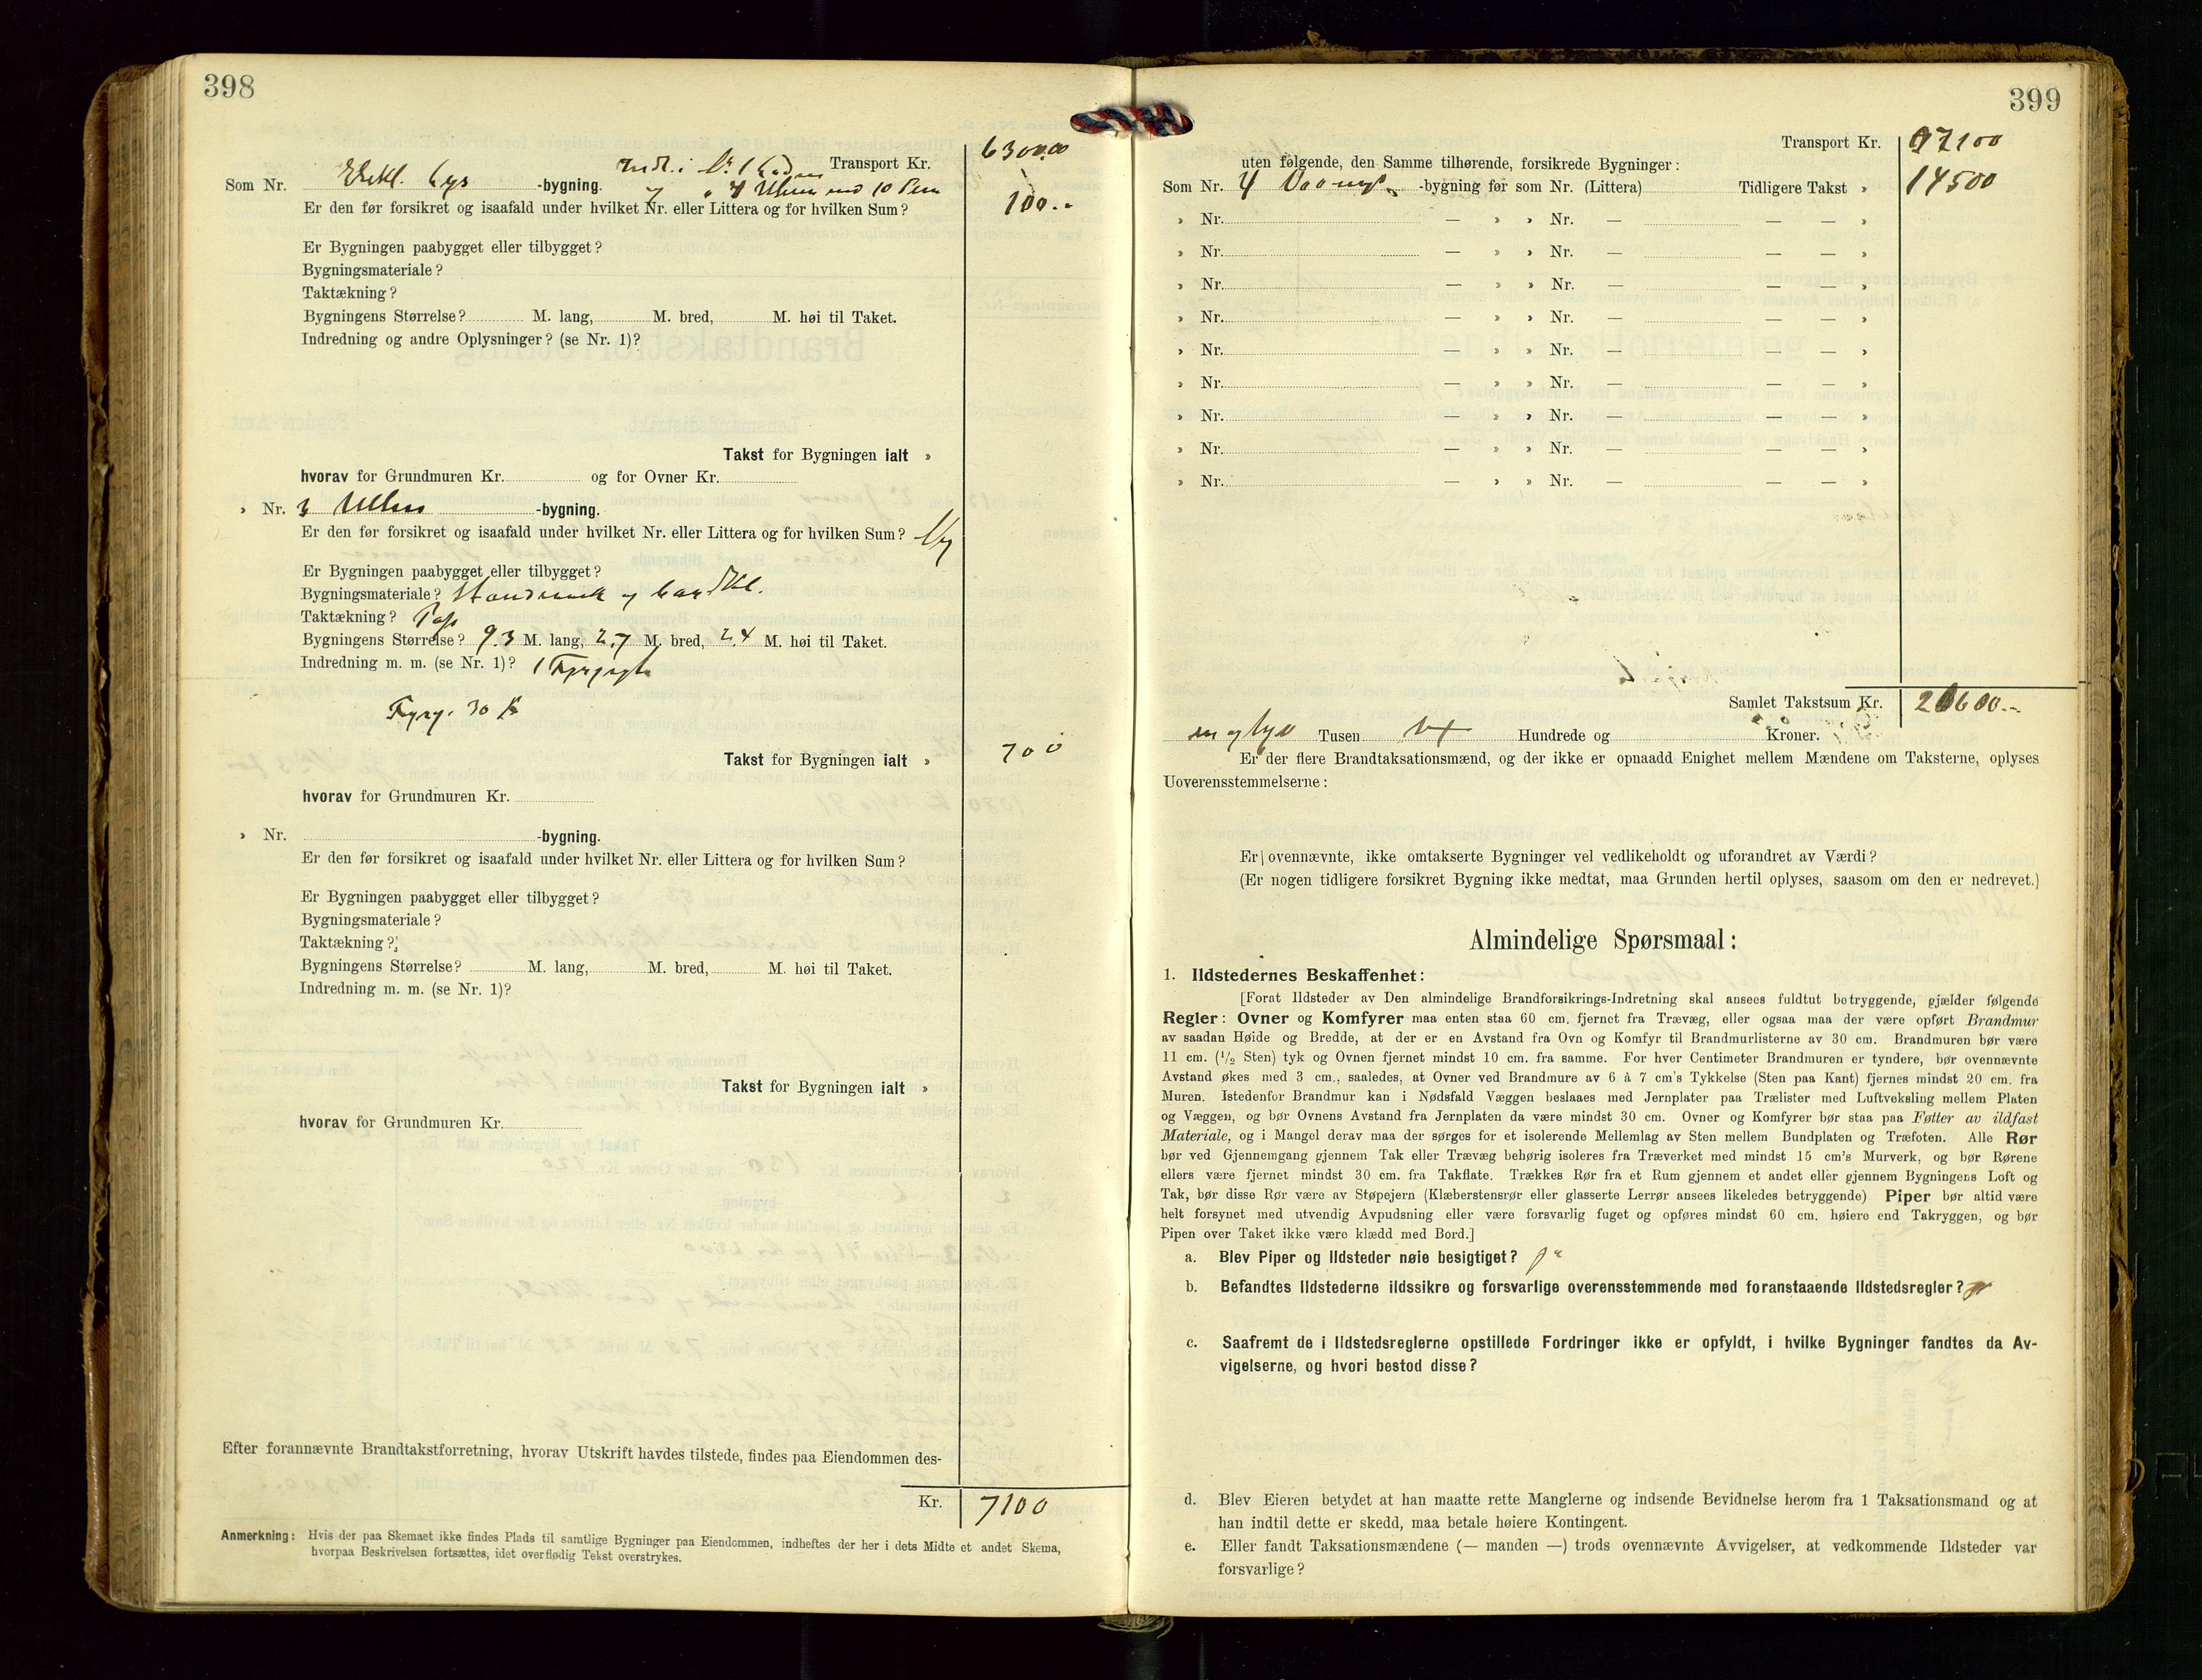 398
Transport Kr. 6300.00
Som Nr. Elektl. Lys -bygning. Indl. i
Er den før forsikret og isaafald under hvilket Nr. eller Littera og for hvilken Sum? 100.-
Er Bygningen paabygget eller tilbygget?
Bygningsmateriale?
Taktækning?
Bygningens Størrelse? M. lang, M. bred, M. høi til Taket.
Indredning og andre Oplysninger? (se Nr. 1)?
Takst for Bygningen ialt »
hvorav for Grundmuren Kr. og for Ovner Kr.
» Nr. 3 -bygning.
Er den før forsikret og isaafald under hvilket Nr. eller Littera og for hvilken Sum? Ny
Er Bygningen paabygget eller tilbygget?
Bygningsmateriale? Standverk og bordkl.
Taktækning? Papp
Bygningens Størrelse? 9.3 M. lang, 2.7 M. bred, 2.4 M. høi til Taket.
Indredning m. m. (se Nr. 1)? 1
30 Kr
Takst for Bygningen ialt » 700
hvorav for Grundmuren Kr.
» Nr. -bygning.
Er den før forsikret og isaafald under hvilket Nr. eller Littera og for hvilken Sum?
Er Bygningen paabygget eller tilbygget?
Bygningsmateriale?
Taktækning?
Bygningens Størrelse? M. lang, M. bred, M. høi til Taket.
Indredning m. m. (se Nr. 1)?
Takst for Bygningen ialt »
hvorav for Grundmuren Kr.
Efter forannævnte Brandtakstforretning, hvorav Utskrift havdes tilstede, findes paa Eiendommen des-
Kr. 7100
Anmerkning: Hvis der paa Skemaet ikke findes Plads til samtlige Bygninger paa Eiendommen, indheftes der her i dets Midte et andet Skema,
hvorpaa Beskrivelsen fortsættes, idet overflødig Tekst overstrykes.
399
Transport Kr. 7100
uten følgende, den Samme tilhørende, forsikrede Bygninger:
Som Nr. 4 Vaanings -bygning før som Nr. (Littera) Tidligere Takst » 14500
» Nr. — » » Nr. — — — »
» Nr. — » » Nr. — — — »
» Nr. — » » Nr. — — — »
» Nr. — » » Nr. — — — »
» Nr. — » » Nr. — — — »
» Nr. — » » Nr. — — — »
» Nr. — » » Nr. — — — »
» Nr. — » » Nr. — — — »
» Nr. — » » Nr. — — — »
Samlet Takstsum Kr. 21600.-
en og tyve Tusen Hundrede og Kroner.
Er der flere Brandtaksationsmænd, og der ikke er opnaadd Enighet mellem Mændene om Taksterne, oplyses
Uoverensstemmelserne:
Er ovennævnte, ikke omtakserte Bygninger vel vedlikeholdt og uforandret av Værdi?
(Er nogen tidligere forsikret Bygning ikke medtat, maa Grunden hertil oplyses, saasom om den er nedrevet.)
Almindelige Spørsmaal:
1. Ildstedernes Beskaffenhet:
[Forat Ildsteder av Den almindelige Brandforsikrings-Indretning skal ansees fuldtut betryggende, gjælder følgende
Regler: Ovner og Komfyrer maa enten staa 60 cm. fjernet fra Trævæg, eller ogsaa maa der være opført Brandmur
av saadan Høide og Bredde, at der er en Avstand fra Ovn og Komfyr til Brandmurlisterne av 30 cm. Brandmuren bør være
11 cm. (1/2 Sten) tyk og Ovnen fjernet mindst 10 cm. fra samme. For hver Centimeter Brandmuren er tyndere, bør ovennævnte
Avstand økes med 3 cm., saaledes, at Ovner ved Brandmure av 6 à 7 cm's Tykkelse (Sten paa Kant) fjernes mindst 20 cm. fra
Muren. Istedenfor Brandmur kan i Nødsfald Væggen beslaaes med Jernplater paa Trælister med Luftveksling mellem Platen
og Væggen, og bør Ovnens Avstand fra Jernplaten da være mindst 30 cm. Ovner og Komfyrer bør staa paa Føtter av ildfast
Materiale, og i Mangel derav maa der sørges for et isolerende Mellemlag av Sten mellem Bundplaten og Træfoten. Alle Rør
bør ved Gjennemgang gjennem Tak eller Trævæg behørig isoleres fra Træverket med mindst 15 cm's Murverk, og bør Rørene
ellers være fjernet mindst 30 cm. fra Takflate. Trækkes Rør fra et Rum gjennem et andet eller gjennem Bygningens Loft og
Tak, bør disse Rør være av Støpejern (Klæberstensrør eller glasserte Lerrør ansees likeledes betryggende) Piper bør altid være
helt forsynet med utvendig Avpudsning eller være forsvarlig fuget og opføres mindst 60 cm. høiere end Takryggen, og bør
Pipen over Taket ikke være klædd med Bord.]
a. Blev Piper og Ildsteder nøie besigtiget? ja
b. Befandtes Ildstederne ildssikre og forsvarlige overensstemmende med foranstaaende Ildstedsregler? ja
c. Saafremt de i Ildstedsreglerne opstillede Fordringer ikke er opfyldt, i hvilke Bygninger fandtes da Av-
vigelserne, og hvori bestod disse?
d. Blev Eieren betydet at han maatte rette Manglerne og indsende Bevidnelse herom fra 1 Taksationsmand og at
han indtil dette er skedd, maa betale høiere Kontingent.
e. Eller fandt Taksationsmændene (— manden —) trods ovennævnte Avvigelser, at vedkommende Ildsteder var
forsvarlige?